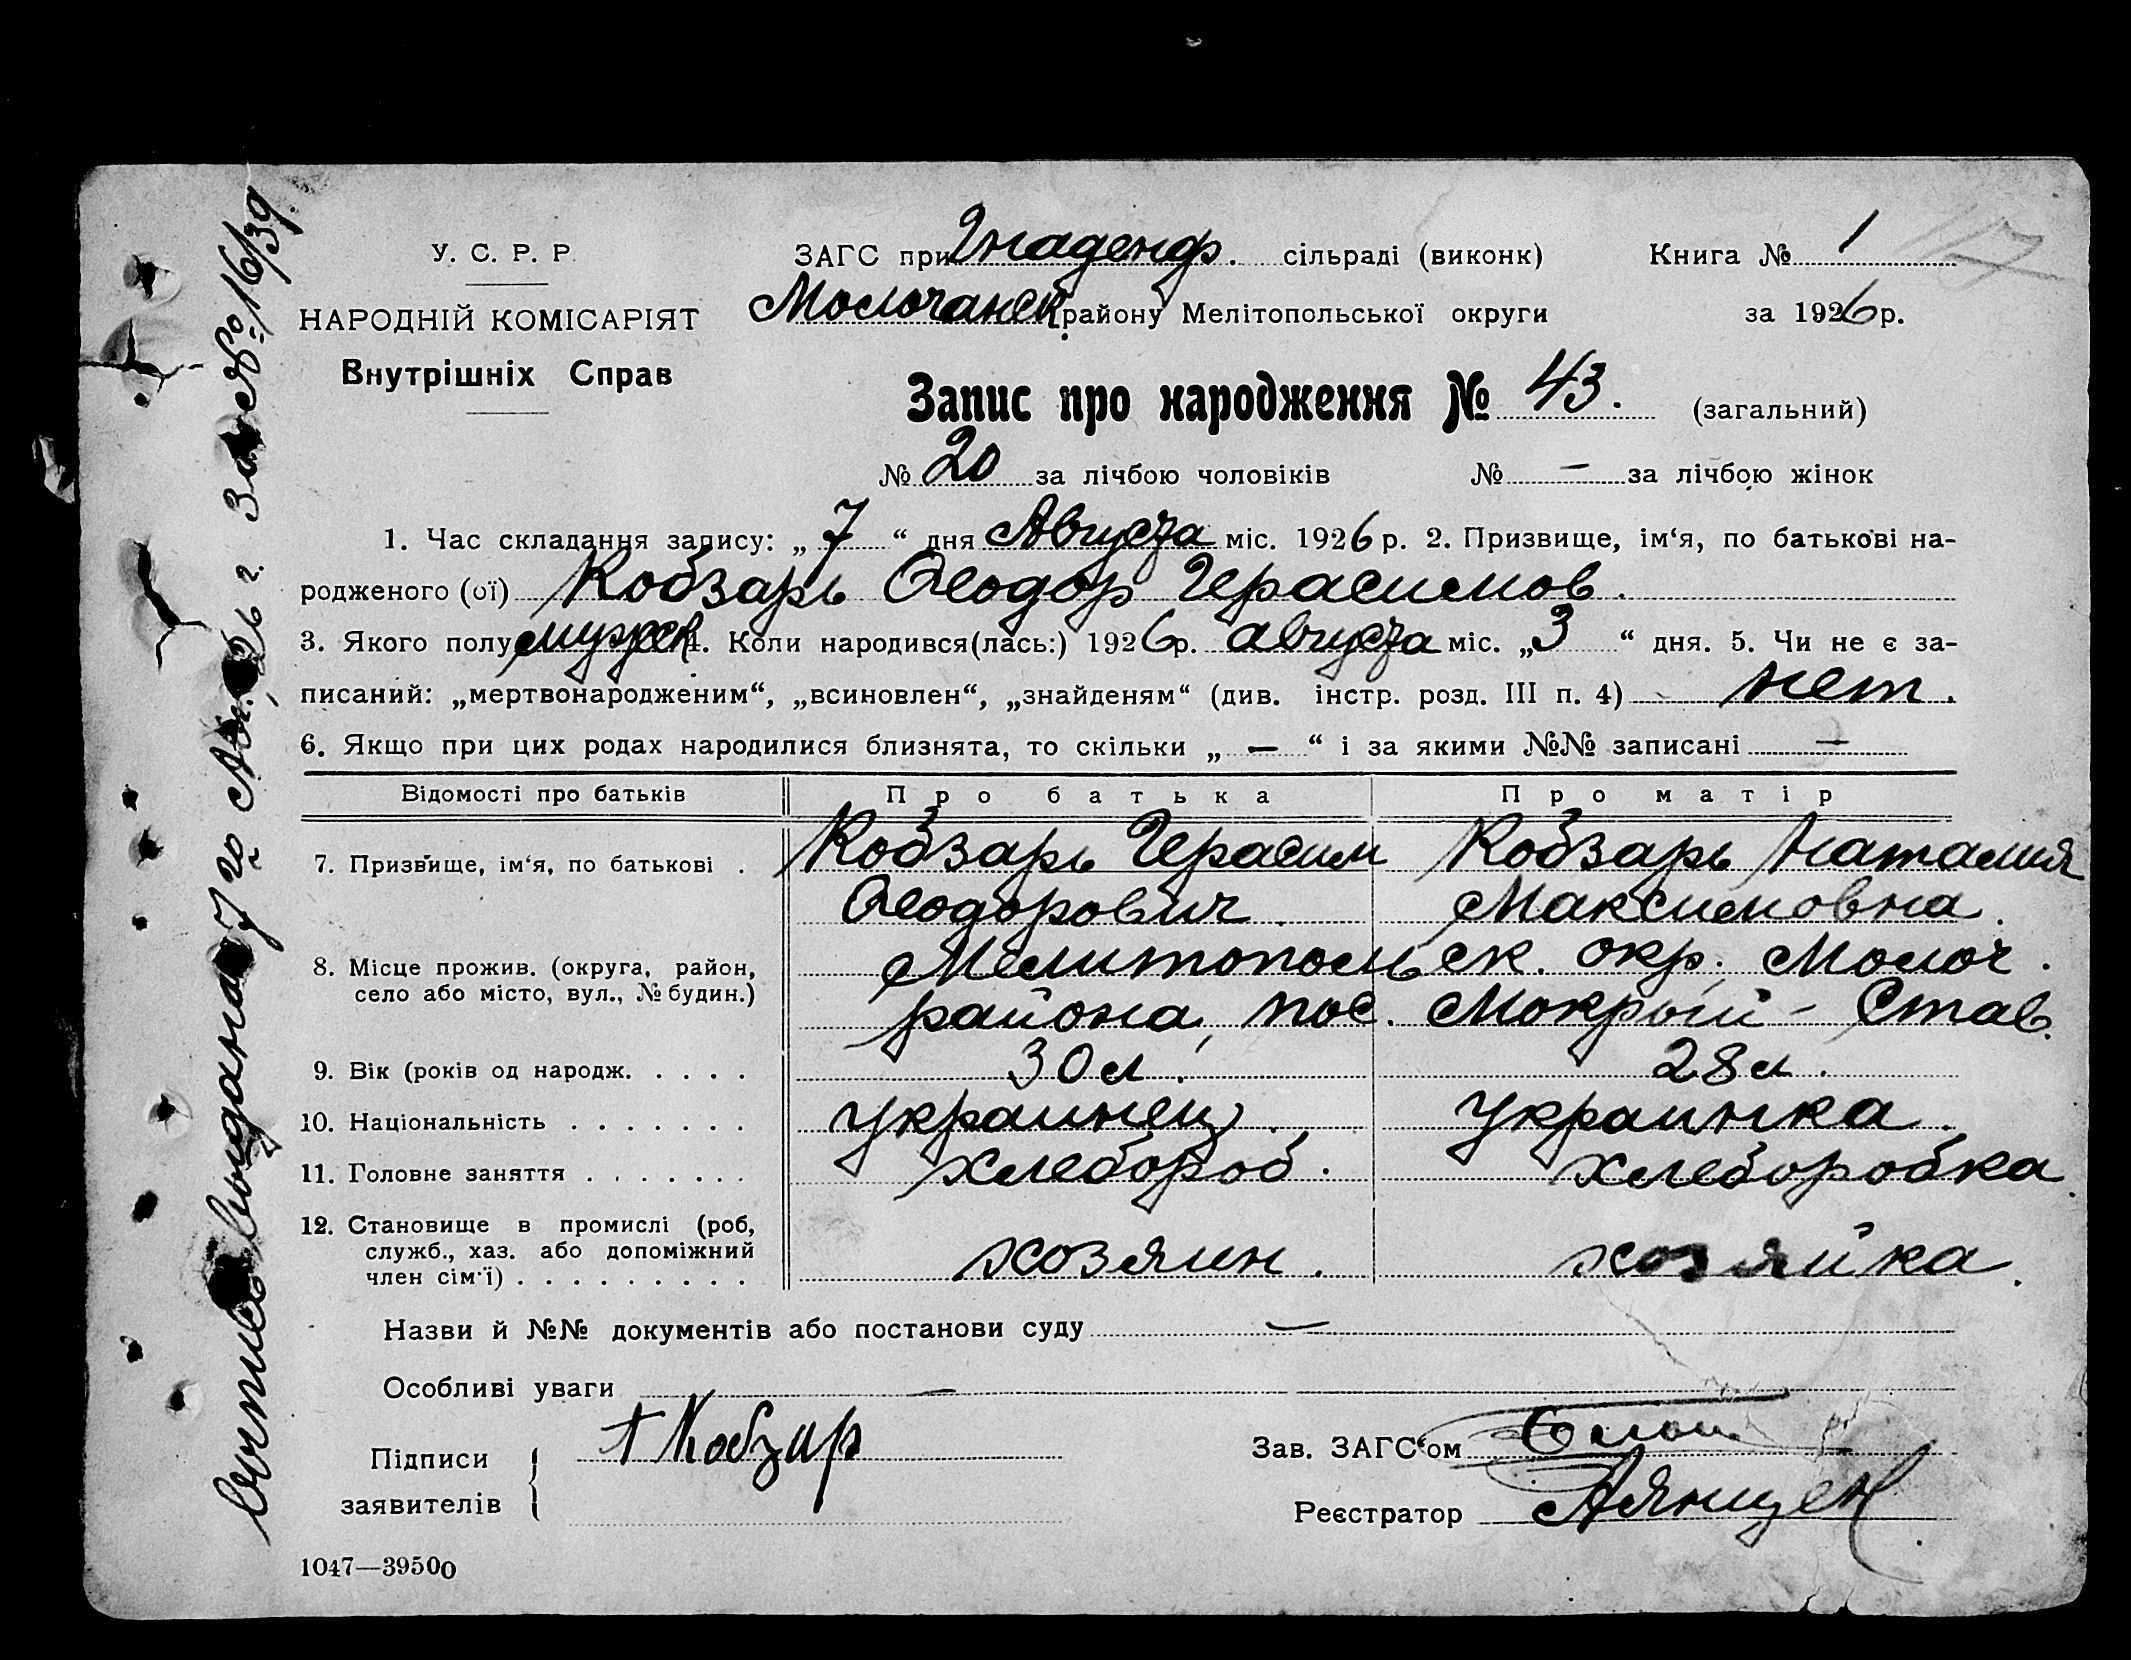 У. С. Р. Р.
НАРОДНІЙ КОМІСАРІЯТ
Внутрішніх Справ
ЗАГС при Гнаденф. сільраді (виконк) Книга № 1
Молочанск району Мелітопольської округи за 1926 р.
Запис про народження № 43. (загальний)
№ 20 за лічбою чоловіків № — за лічбою жінок
1. Час складання запису: „ 7 “ дня Августа міс. 1926 р. 2. Призвище, ім‘я, по батькові на-
родженого (ої) Кобзарь Феодор Герасимов.
3. Якого полу мужск 4. Коли народився(лась:) 1926 р. августа міс. „ 3 “ дня. 5. Чи не є за-
писаний: „мертвонародженим“, „всиновлен“, „знайденям“ (див. інстр. розд. III п. 4) нет.
6. Якщо при цих родах народилися близнята, то скільки „ — “ і за якими №№ записані —
Відомості про батьків Про батька Про матір
7. Призвище, ім‘я, по батькові . Кобзарь Герасим Кобзарь Наталия
Феодорович. Максимовна.
8. Місце прожив. (округа, район, Мелитопольск. окр. Молоч.
село або місто, вул., № будин.) района, пос. Мокрый - Став.
9. Вік (років од народж. . . . . 30 л. 28 л.
10. Національність . . . . . . . украинец. украинка.
11. Головне заняття . . . . . . . хлебороб. хлеборобка.
12. Становище в промислі (роб,
служб., хаз. або допоміжний хозяин. хозяйка.
член сім‘ї) . . . . . . . . .
Назви й №№ документів або постанови суду —
Особливі уваги —
Підписи Кобзар
заявителів
Зав. ЗАГС‘ом
Реєстратор
1047—39500
выпись выдана 7го Авг. 26 г. За № 16/39.